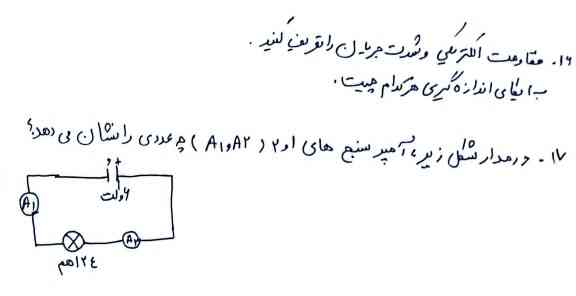 ۱۶. مقاومت الکتریکی و شدت جریان را تعریف کنید.
ب. یکای اندازه گیری هر کدام چیست.
۱۷. در مدار شکل زیر، آمپر سنج های ۱ و ۲ (A۱ و A۲) چه عددی را نشان می دهد؟
+
۶ ولت
A۱
A۲
۱۲ اهم